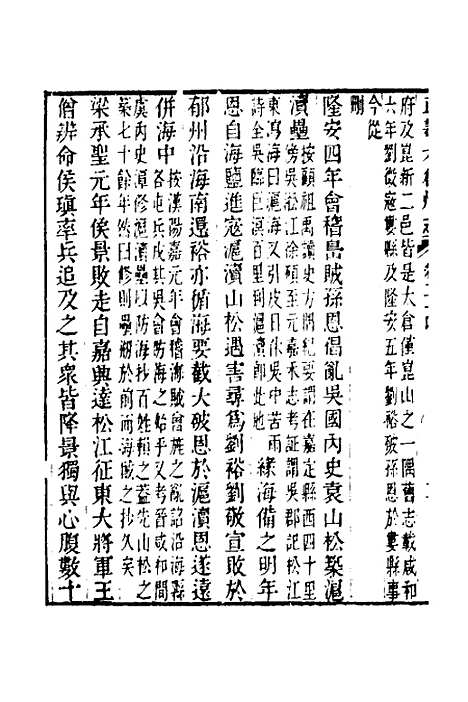 府及崑新二邑皆是大倉僅崑山之一隅舊志載咸和
六年劉徵寇婁縣及隆安五年劉裕破孫恩於婁縣事
今從
刪
隆安四年會稽嵒賊孫恩倡亂吳國內史袁山松築滬
瀆壘按顧祖禹讀史方輿紀要謂在嘉定縣西四十里
旁吳松江徐碩至元嘉禾志考証謂吳郡記松江
東瀉海曰滬海又引皮日休吳中苦雨
詩全吳臨巨溟百里到滬瀆即此地
緣海備之明年
恩自海鹽進寇滬瀆山松遇害尋爲劉裕劉敬宣敗於
郁州沿海南還裕亦循海要截大破恩於滬瀆恩遂遠
併海中按漢陽嘉元年會稽海賊曾旌之亂詔沿海縣
各屯兵戍其吳會防海之始乎又考晉咸和間
虞內史潭修滬瀆壘以防海抄百姓賴之蓋先山松之
築七十餘年然曰修則壘剏於前而海賊之抄久矣
梁承聖元年侯景敗走自嘉興達松江征東大將軍王
僧辨命侯瑱率兵追及之其衆皆降景獨與心腹數十